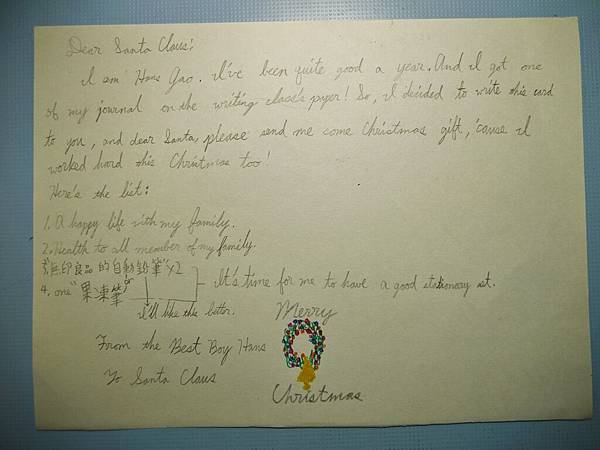 Dear Santa Claus:
I am Hans Gao. I've been quite good a year. And I got one
of my journal on the writing class's paper! So, I decided to write this card
to you, and dear Santa, please send me come Christmas gift, 'cause I
worked hard this Christmas too!
Here's the list:
1. A happy life with my family.
2. Health to all member of my family.
3. "無印良品的自動鉛筆"x2
4. one "果凍筆" or
It's time for me to have a good stationary set.
I'll like this better.
Merry
From the Best Boy Hans
To Santa Claus
Christmas